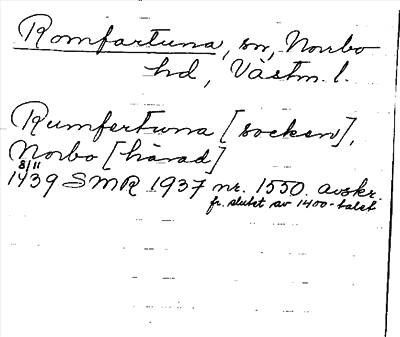 Romfartuna, sn, Norrbo
hd, Västm. l.
Rumfertuna [socken],
Norbo [härad]
8/11
1439 SMR 1937 nr. 1550. avskr.
fr. slutet av 1400-talet